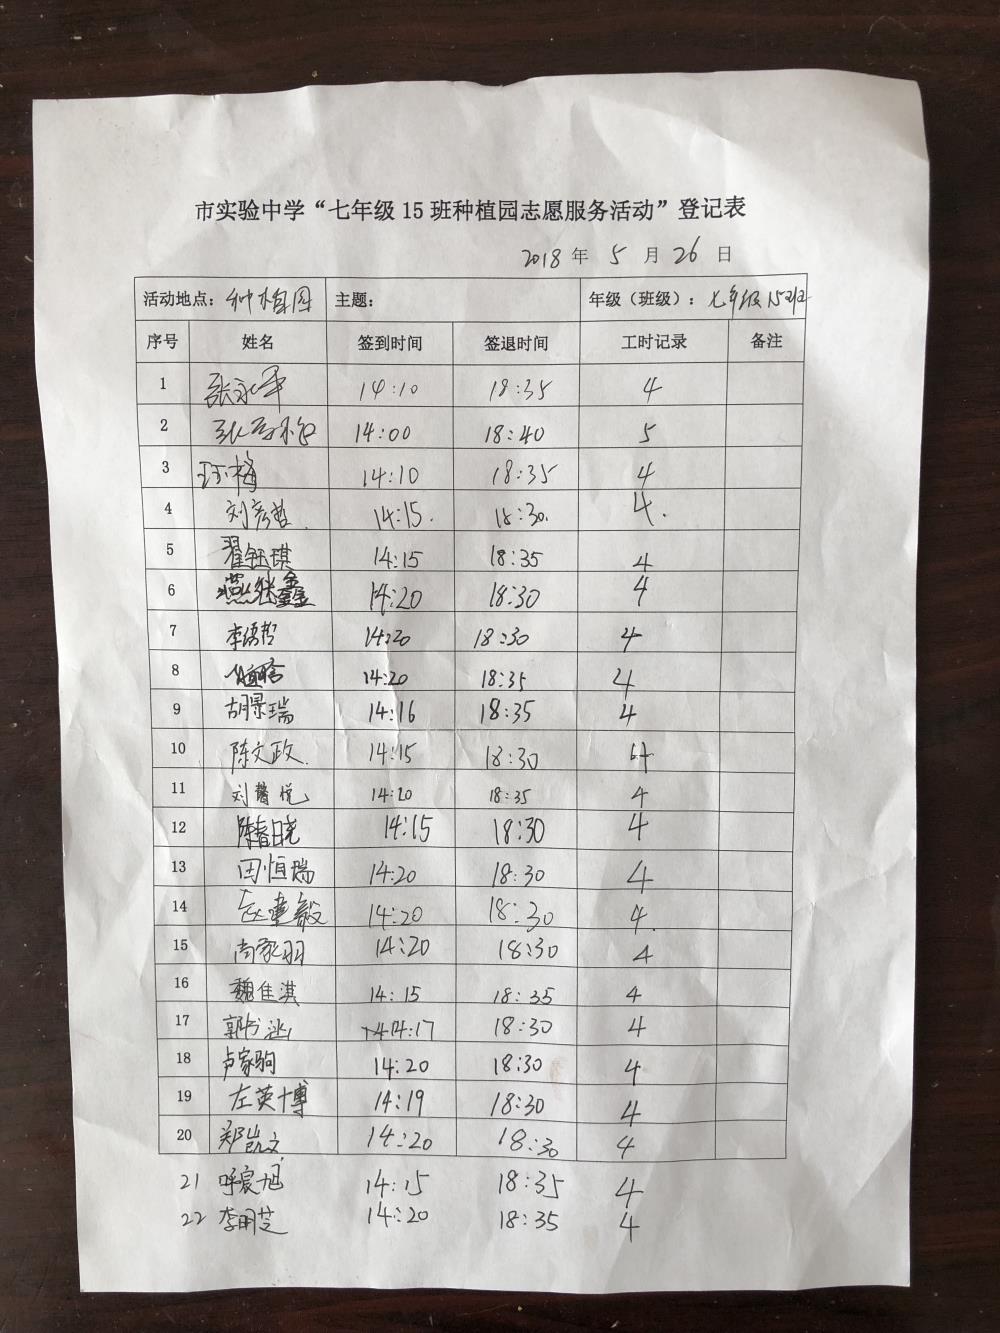 市实验中学“七年级 15 班种植园志愿服务活动”登记表
2018 年 5 月 26 日
活动地点：种植园 主题： 年级（班级）：七年级15班
序号 姓名 签到时间 签退时间 工时记录 备注
1 张永军 14:10 18:35 4
2 14:00 18:40 5
3 14:10 18:35 4
4 刘彦哲. 14:15. 18:30. 4.
5 翟钰琪 14:15 18:35 4
6 燕继鑫 14:20 18:30 4
7 李靖哲 14:20 18:30 4
8 14:20 18:35 4
9 胡景瑞 14:16 18:35 4
10 陈文政. 14:15 18:30 4
11 刘馨悦 14:20 18:35 4
12 陈春晓 14:15 18:30 4
13 田恒瑞 14:20 18:30 4
14 赵建毅 14:20 18:30 4.
15 尚家羽 14:20 18:30 4
16 魏佳淇 14:15 18:35 4
17 14:17 18:30 4
18 卢家驹 14:20 18:30 4
19 左英博 14:19 18:30 4
20 郑凯文 14:20 18:30 4
21 呼宸旭 14:15 18:35 4
22 李明芝 14:20 18:35 4